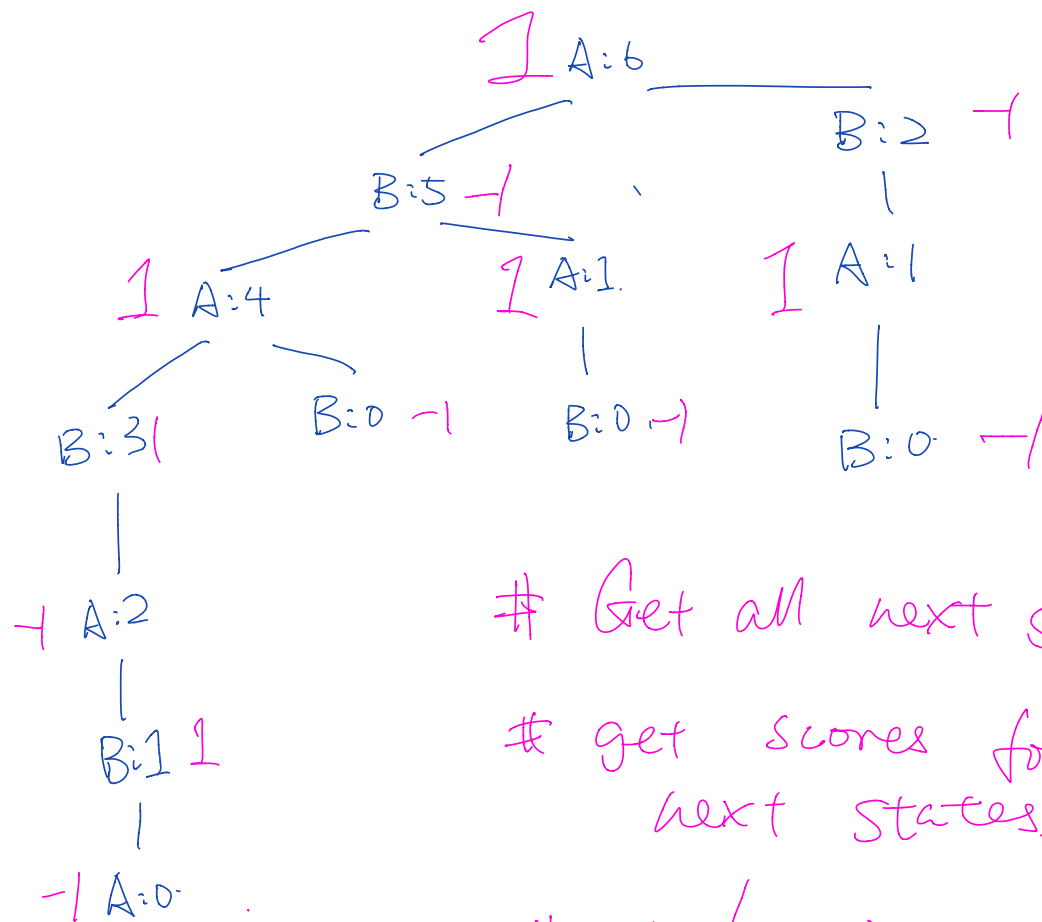 1 A:6
B:2 -1
B:5 -1
1 A:4
1 A:1.
1 A:1
B:3 1
B:0 -1
B:0 -1
B:0 -1
-1 A:2
# Get all next
B:1 1
# get scores
next states
-1 A:0